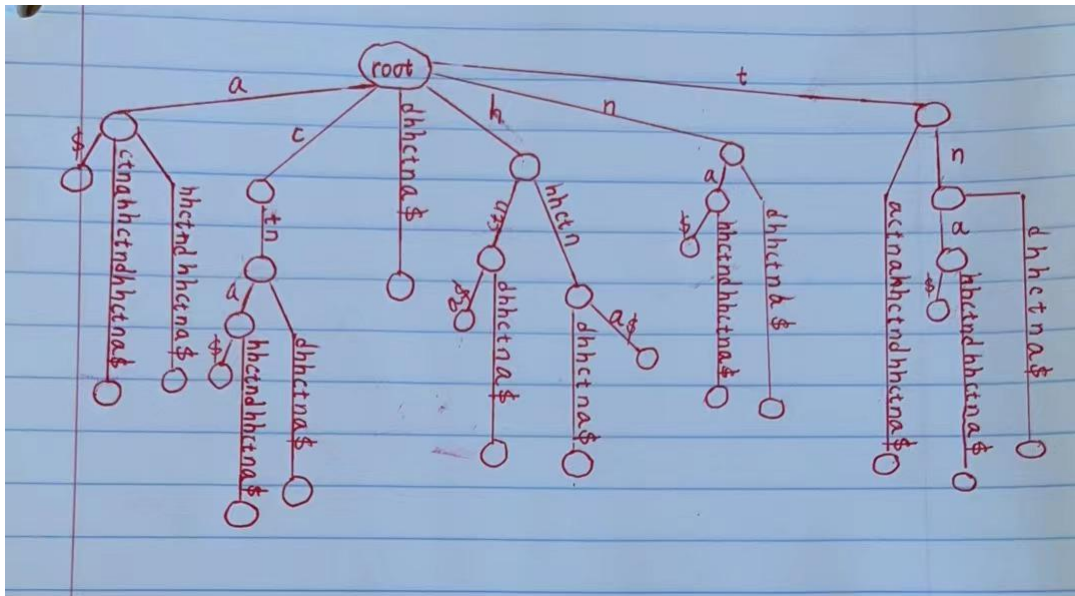 root
a
c
dhhctna$
h
n
t
$
ctnahhctndhhctna$
hhctndhhctna$
tn
a
$
hhctndhhctna$
dhhctna$
dhhctna$
hhctn
dhhctna$
a$
a
$
hhctndhhctna$
dhhctna$
actnahhctndhhctna$
n
a
$
hhctndhhctna$
dhhctna$